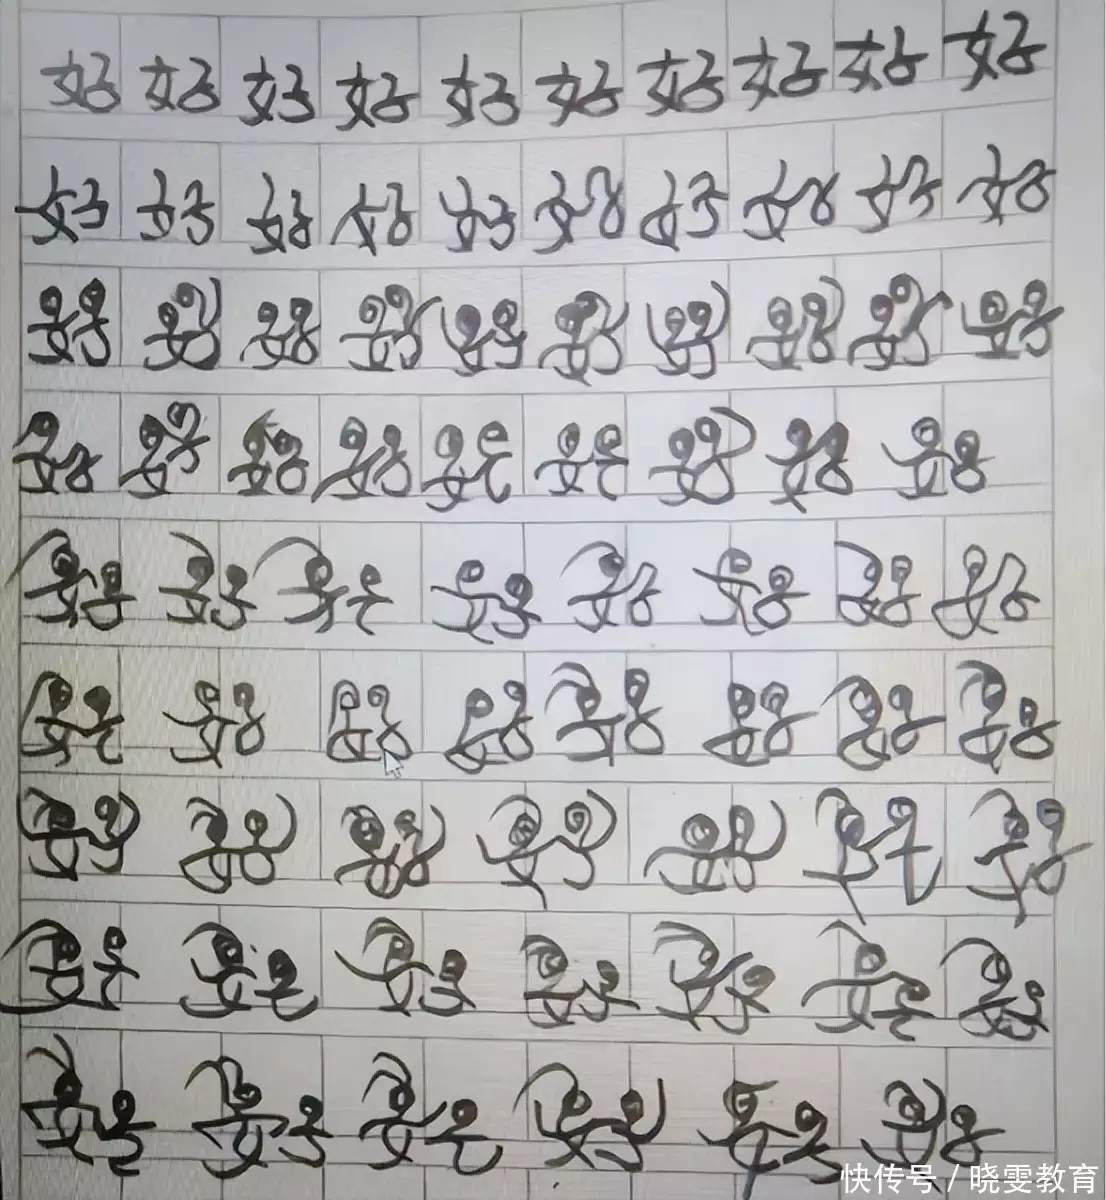 好 好 好 好 好 好 好 好 好 好
好 好 好 好 好 好 好 好 好 好
好 好 好 好 好 好 好 好 好 好
好 好 好 好 好 好 好 好 好
好 好 好 好 好 好 好 好
好 好 好 好 好 好 好 好
好 好 好 好 好 好 好
好 好 好 好 好 好 好
好 好 好 好 好 好
快传号 / 晓雯教育